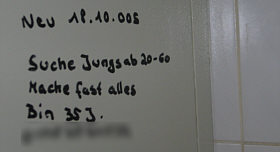 Neu 18.10.005
Suche Jungs ab 20-60
Mache fast alles
Bin 35 J.